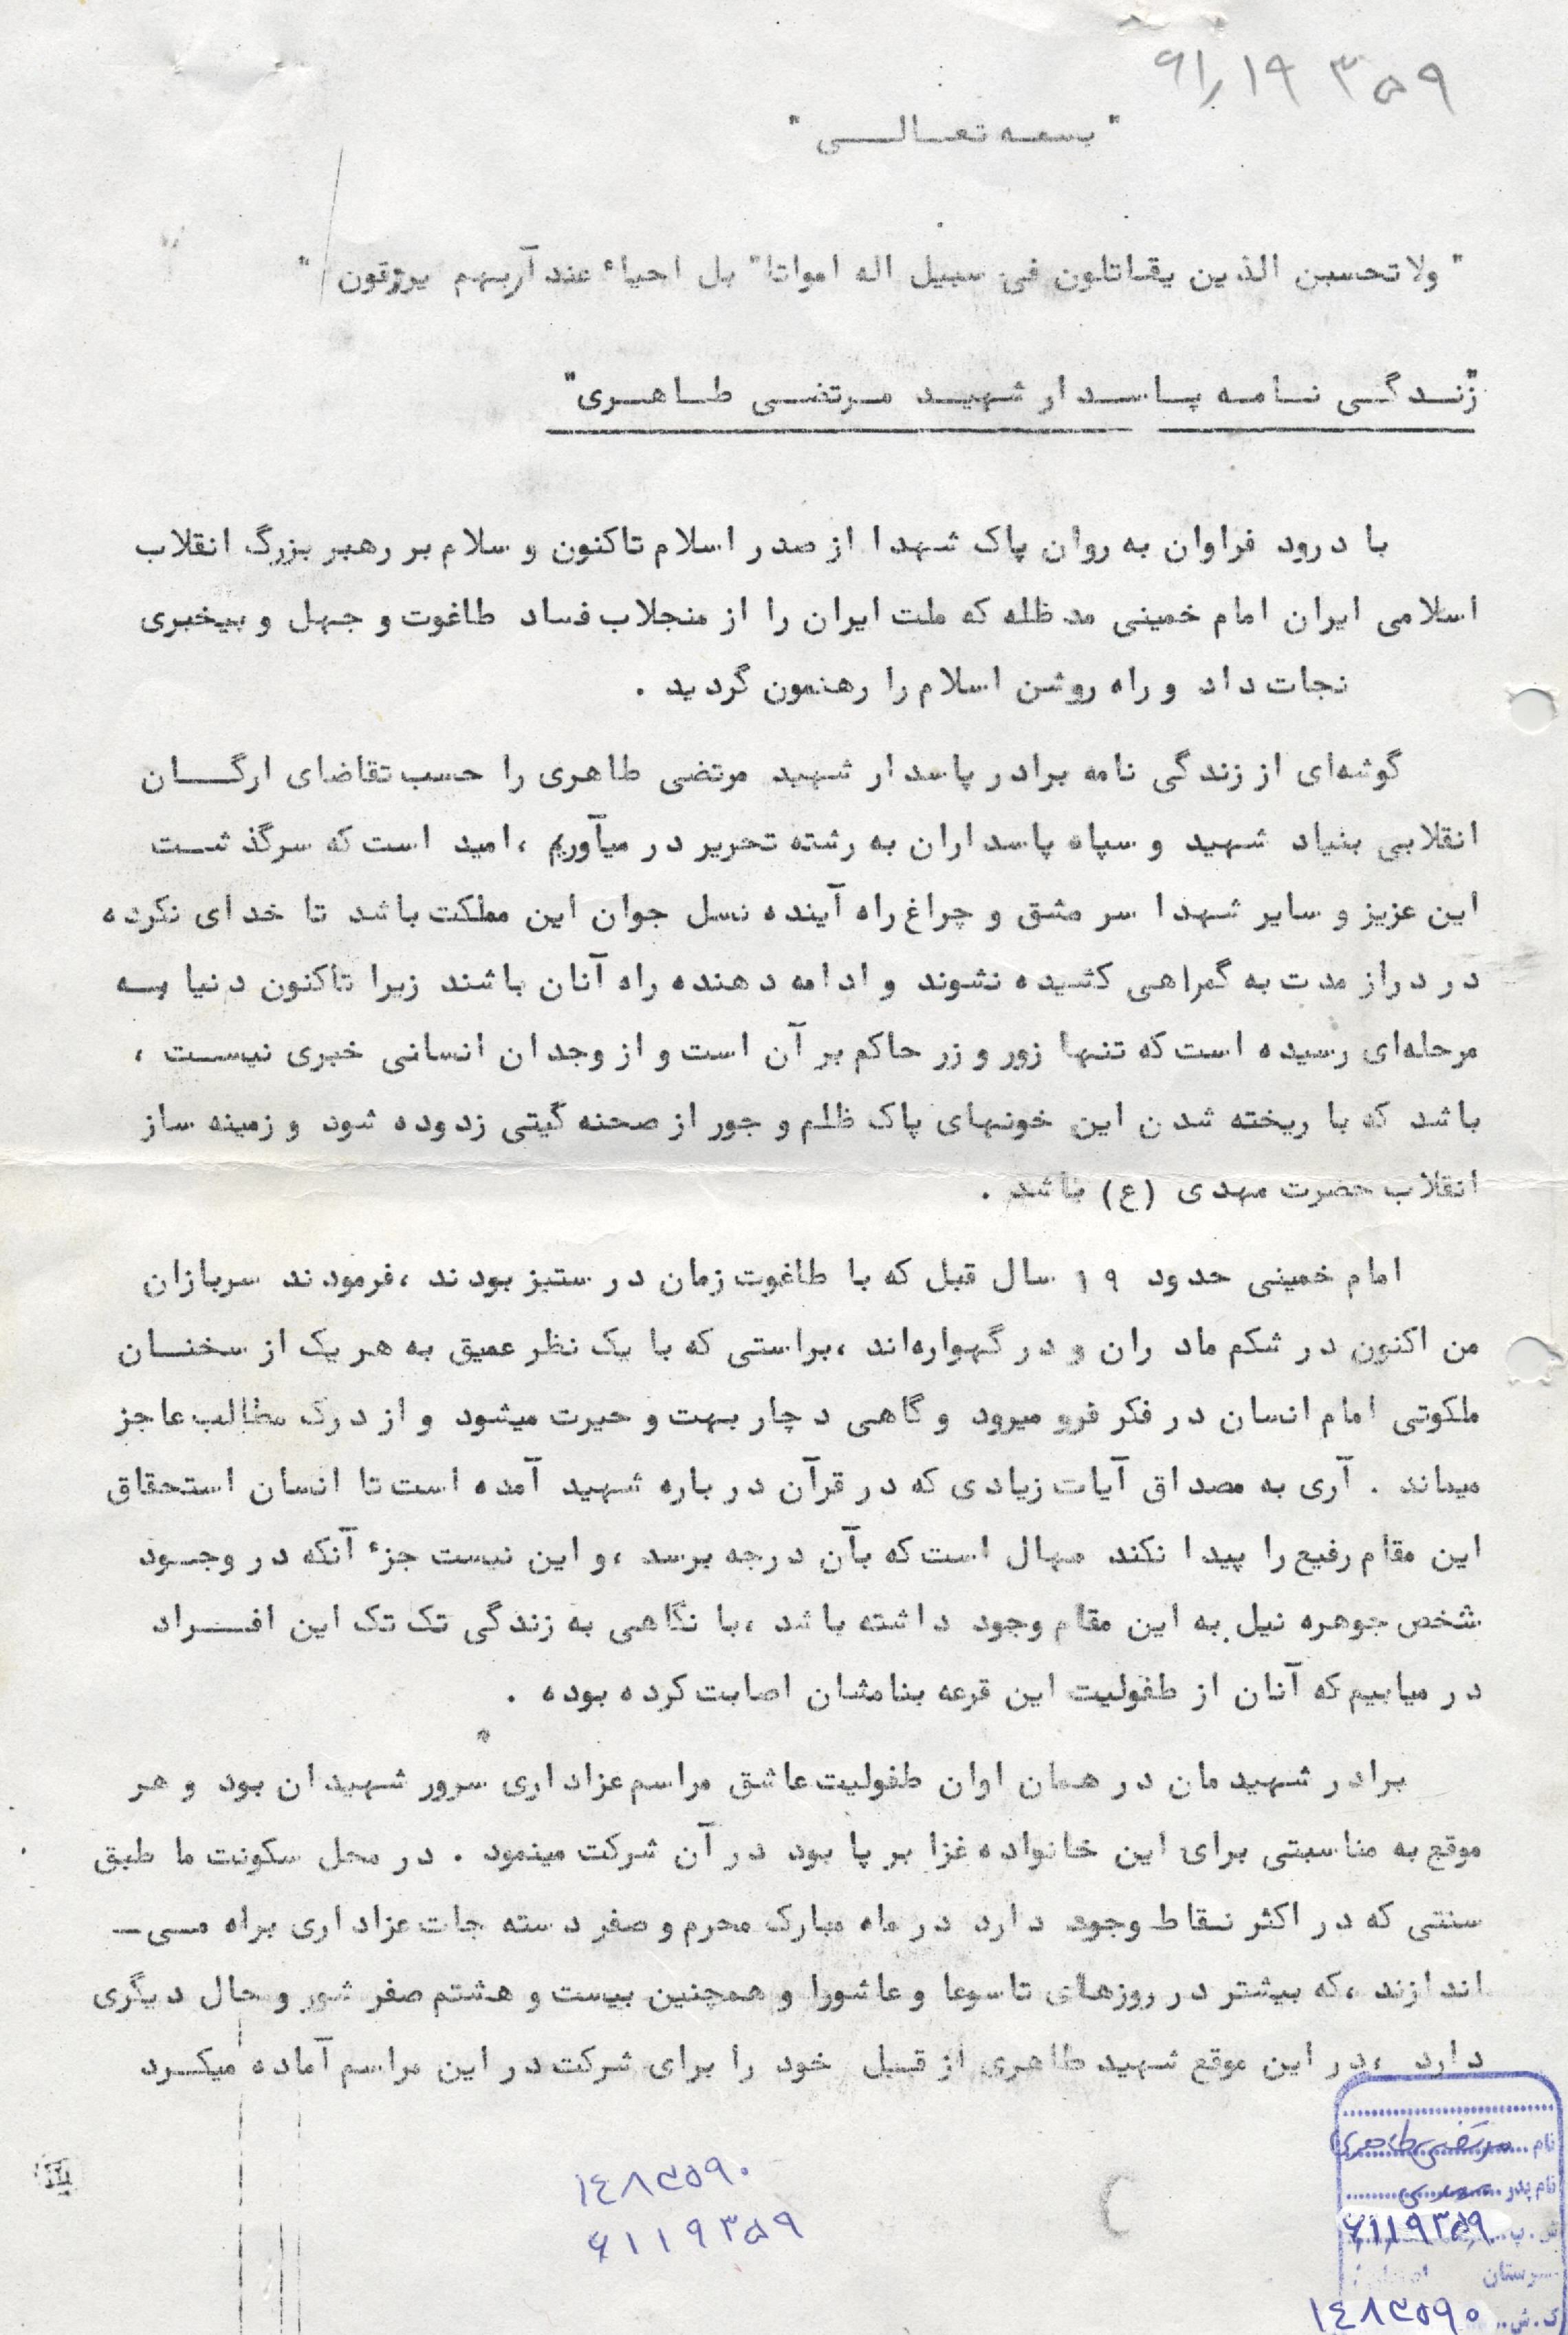 ۶۱٫۱۹ ۳۵۹
"بسمه تعالی"
"ولاتحسبن الذین یقاتلون فی سبیل اله امواتا" بل احیاء عند آربهم یرزقون"
"زندگی نامه پاسدار شهید مرتضی طاهری"
با درود فراوان به روان پاک شهدا از صدر اسلام تاکنون و سلام بر رهبر بزرگ انقلاب
اسلامی ایران امام خمینی مد ظله که ملت ایران را از منجلاب فساد طاغوت و جهل و بیخبری
نجات داد و راه روشن اسلام را رهنمون گردید .
گوشه‌ای از زندگی نامه برادر پاسدار شهید مرتضی طاهری را حسب تقاضای ارگان
انقلابی بنیاد شهید و سپاه پاسداران به رشته تحریر در میآوریم ،امید است که سرگذشت
این عزیز و سایر شهدا سر مشق و چراغ راه آینده نسل جوان این مملکت باشد تا خدای نکرده
در دراز مدت به گمراهی کشیده نشوند و ادامه دهنده راه آنان باشند زیرا تاکنون دنیا به
مرحله‌ای رسیده است که تنها زور و زر حاکم بر آن است و از وجدان انسانی خبری نیست ،
باشد که با ریخته شدن این خونهای پاک ظلم و جور از صحنه گیتی زدوده شود و زمینه ساز
انقلاب حضرت مهدی (ع) باشد .
امام خمینی حدود ۱۹ سال قبل که با طاغوت زمان در ستیز بودند ،فرمودند سربازان
من اکنون در شکم مادران و در گهواره‌اند ،براستی که با یک نظر عمیق به هر یک از سخنان
ملکوتی امام انسان در فکر فرو میرود و گاهی دچار بهت و حیرت میشود و از درک مطالب عاجز
میماند . آری به مصداق آیات زیادی که در قرآن در باره شهید آمده است تا انسان استحقاق
این مقام رفیع را پیدا نکند مهال است که بآن درجه برسد ،و این نیست جزء آنکه در وجود
شخص جوهره نیل به این مقام وجود داشته باشد ،با نگاهی به زندگی تک تک این افراد
در میابیم که آنان از طفولیت این قرعه بنامشان اصابت کرده بوده .
برادر شهیدمان در همان اوان طفولیت عاشق مراسم عزاداری سرور شهیدان بود و هر
موقع به مناسبتی برای این خانواده غزا بر پا بود در آن شرکت مینمود . در محل سکونت ما طبق
سنتی که در اکثر نقاط وجود دارد در ماه مبارک محرم و صفر دسته جات عزاداری براه می-
اندازند ،که بیشتر در روزهای تاسوعا و عاشورا و همچنین بیست و هشتم صفر شور و حال دیگری
دارد ،در این موقع شهید طاهری از قبل خود را برای شرکت در این مراسم آماده میکرد
۱۴۸۳۵۹۰
۶۱۱۹۳۵۹
نام مرتضی طاهری
نام پدر
ش . پ ۶۱۱۹۳۵۹
ک . ش ۱۴۸۳۵۹۰